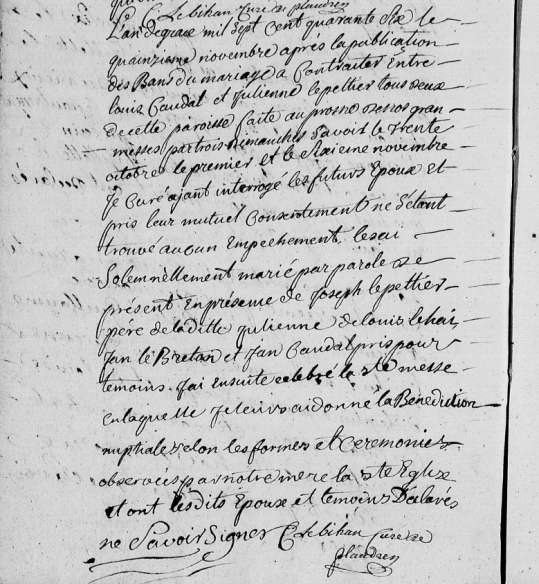 C Le bihan Curé de plaudren
L'an de grace mil sept cent quarante Six le
quinzieme novembre après la publication
des Bans du mariage a Contracter Entre
louis Caudal et Julienne le pettier tous deux
de cette paroisse faite au prosne de nos gran
messes par trois dimanches Savoir le trente
octobre le premier et le Sixieme novembre
Je Curé ajant interrogé les futurs Epoux et
pris leur mutuel Consentement ne S'étant
trouvé aucun Empechement les ai
Solemnellement marié par parole de
présent En présence de Joseph le pettier
père de la ditte Julienne de louis
Jan le Bretan et Jan Caudal pris pour
temoins. J'ai ensuite celebré la Ste messe
en laquelle Je leurs ai donné la Bénédiction
nuptiale selon les formes et Ceremonies
observées par notre mere la Ste Eglize
et ont les dits Epoux et temoins Déclarés
ne Savoir Signer C Le bihan Curé de
plaudren